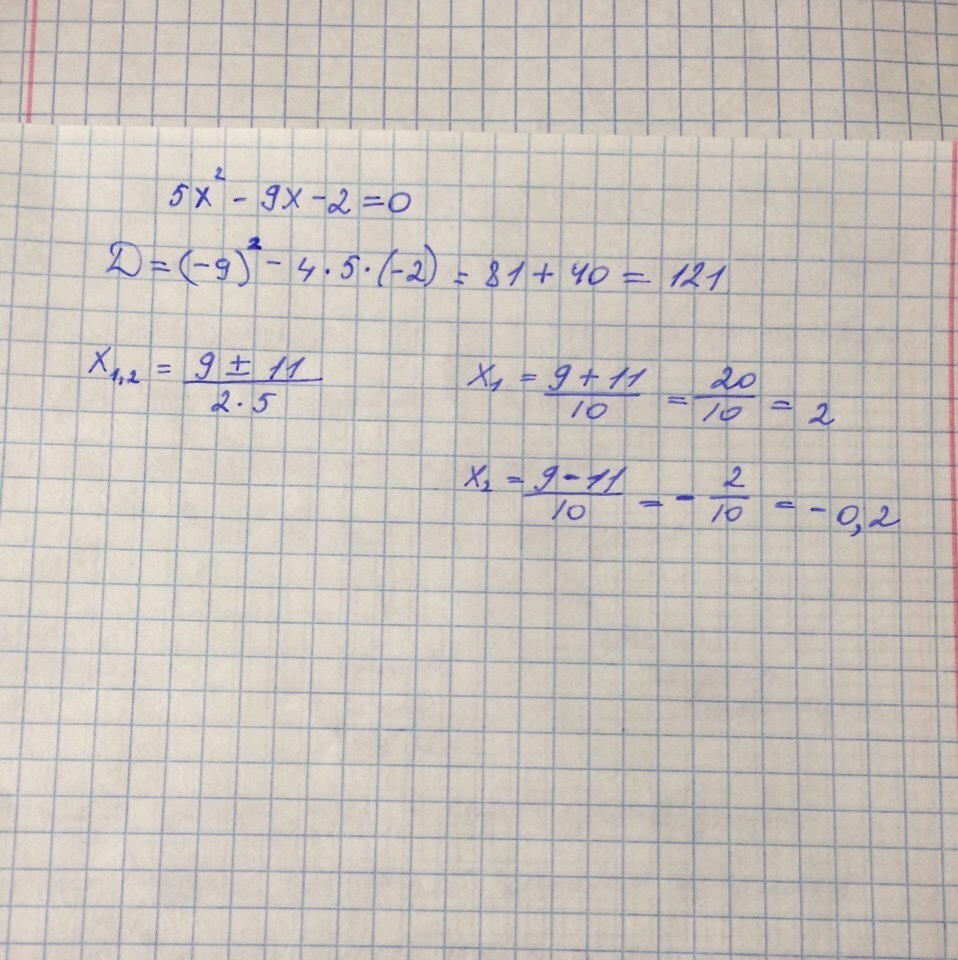 5x² - 9x - 2 = 0
D = (-9)² - 4·5·(-2) = 81 + 40 = 121
x₁,₂ = (9 ± 11)/(2·5)
x₁ = (9 + 11)/10 = 20/10 = 2
x₂ = (9 - 11)/10 = - 2/10 = - 0,2